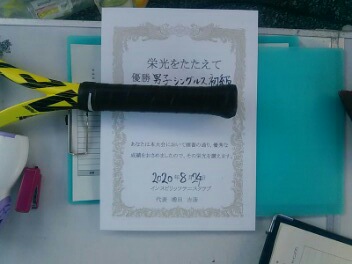 栄光をたたえて
優勝 男子シングルス初級
あなたは本大会において頭書の通り、優秀な
成績をおさめましたので、その栄光を讃えます。
2020年8月24日
インスピリッツテニスクラブ
代表